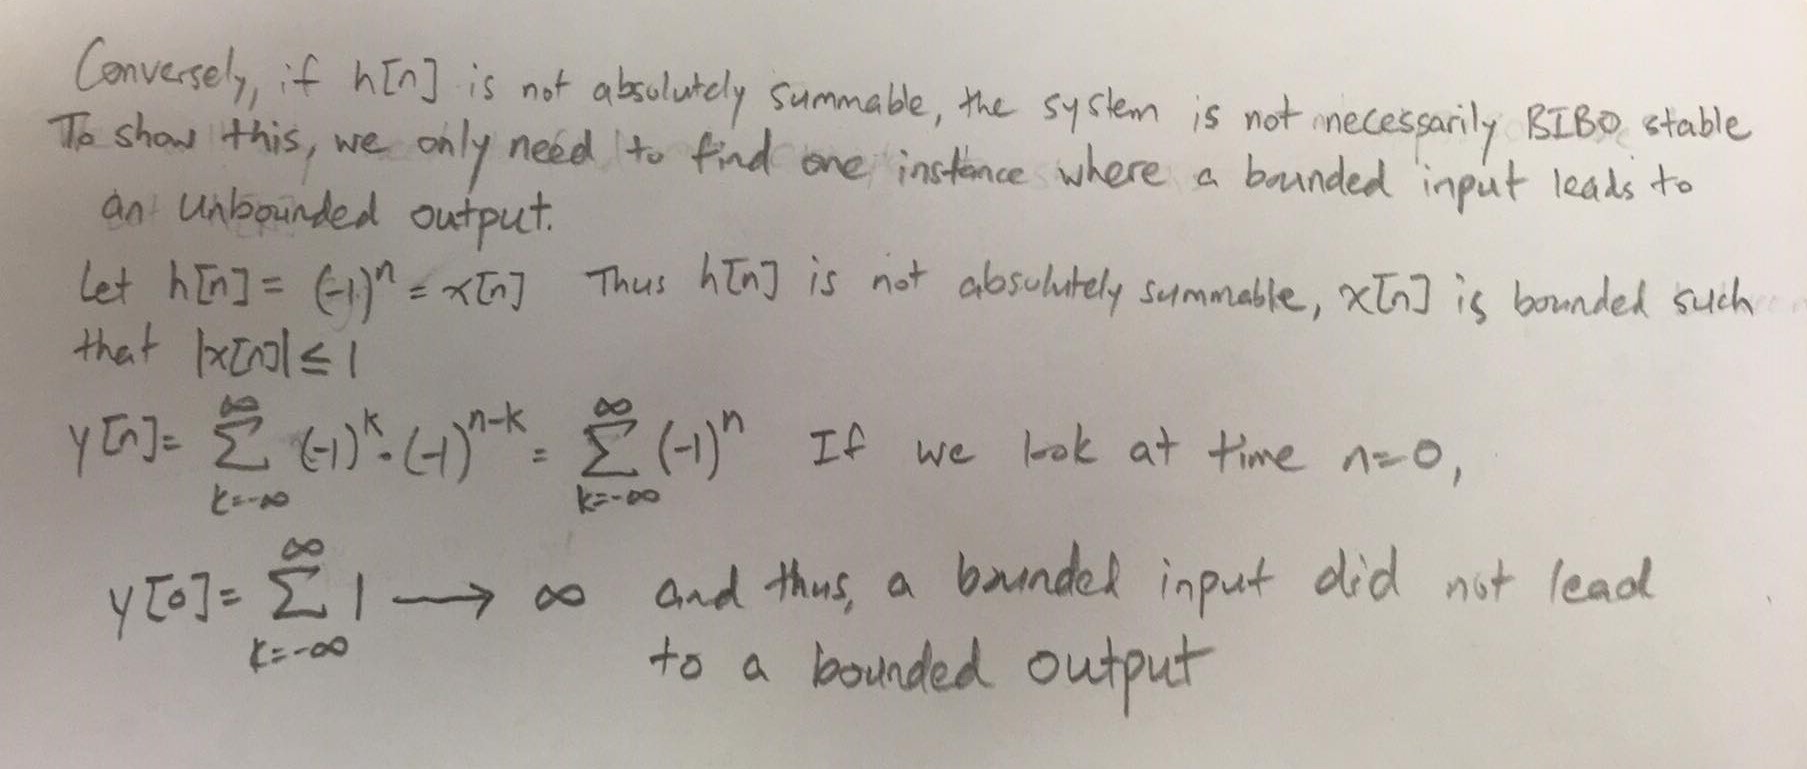 Conversely, if h[n] is not absolutely summable, the system is not necessarily BIBO stable
To show this, we only need to find one instance where a bounded input leads to
an unbounded output.
Let h[n] = (-1)^n = x[n] Thus h[n] is not absolutely summable, x[n] is bounded such
that |x[n]| ≤ 1
y[n] = ∑_{k=-∞}^{∞} (-1)^k · (-1)^{n-k} = ∑_{k=-∞}^{∞} (-1)^n If we look at time n=0,
y[0] = ∑_{k=-∞}^{∞} 1 ⟶ ∞ and thus, a bounded input did not lead
to a bounded output